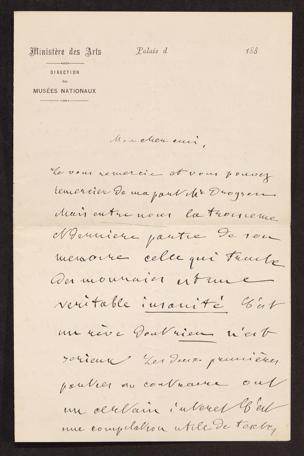 Ministère des Arts
DIRECTION
des
MUSÉES NATIONAUX
Palais d
188
Mon cher ami,
Je vous remercie et vous pouvez
remercier de ma part Mr
Mais entre nous la troisieme
et derniere partie de son
memoire celle qui traite
des monnaies est une
veritable insanité C'est
un rêve dont rien n'est
serieux Les deux premières
parties au contraire ont
un certain interet C'est
une compilation utile de textes,